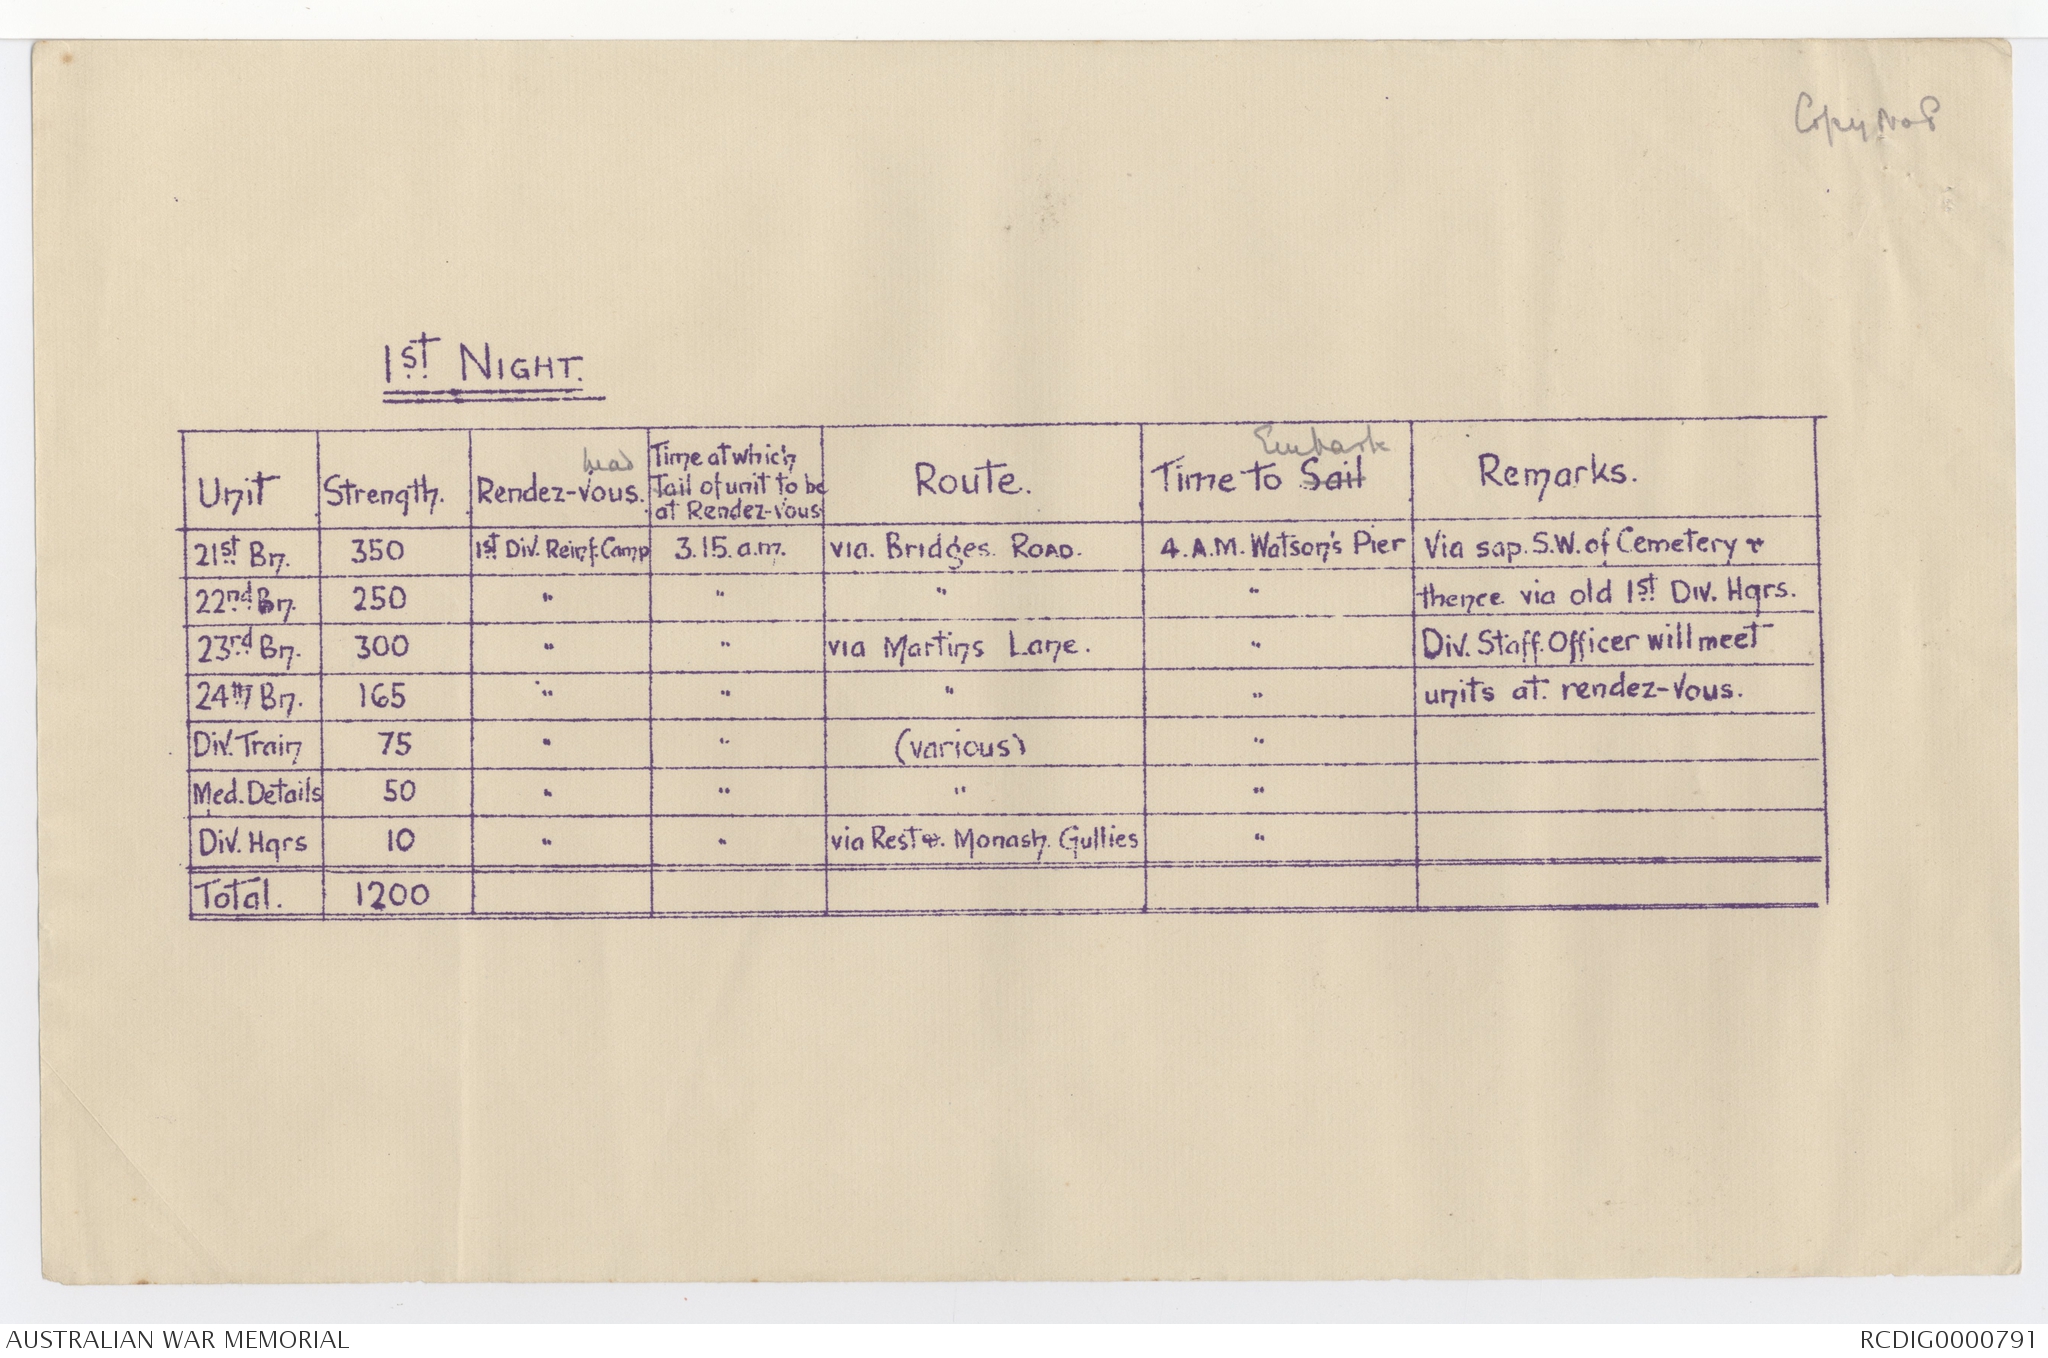 Copy No 8
1st NIGHT.
Unit | Strength. | Rendez-vous. head | Time at which Tail of unit to be at Rendez-vous | Route. | Time to Sail Embark | Remarks.
21st Bn. | 350 | 1st Div. Reinf. Camp | 3.15. a.m. | via. Bridges. ROAD. | 4. A.M. Watson's Pier | Via sap. S.W. of Cemetery &
22nd Bn. | 250 | " | " | " | " | thence via old 1st Div. Hqrs.
23rd Bn. | 300 | " | " | via Martins Lane. | " | Div. Staff. Officer will meet
24th Bn. | 165 | " | " | " | " | units at rendez-vous.
Div. Train | 75 | " | " | (various) | "
Med. Details | 50 | " | " | " | "
Div. Hqrs | 10 | " | " | via Rest &. Monash. Gullies | "
Total. | 1200
AUSTRALIAN WAR MEMORIAL
RCDIG0000791